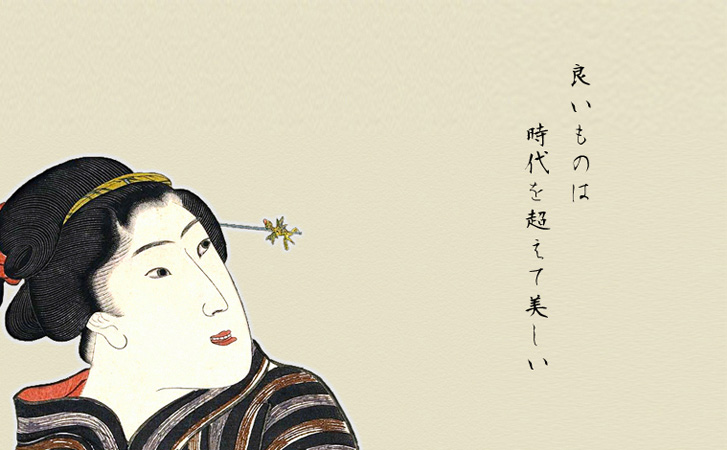 良いものは
時代を超えて美しい